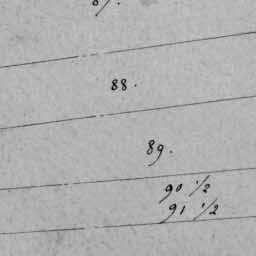 88.
89.
90 1/2
91 1/2